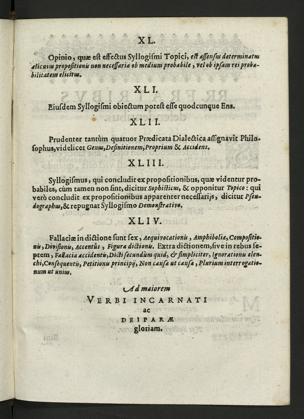 XL.
Opinio, quæ est effectus Syllogismi Topici, est assensus determinatus
alicuius propositionis non necessariæ ob medium probabile, vel ob ipsam rei proba-
bilitatem elicitus.
XLI.
Eiusdem Syllogismi obiectum potest esse quodcunque Ens.
XLII.
Prudenter tantùm quatuor Prædicata Dialectica assignavit Philo-
sophus, videlicet Genus, Definitionem, Proprium & Accidens.
XLIII.
Syllogismus, qui concludit ex propositionibus, quæ videntur pro-
babiles, cùm tamen non sint, dicitur Sophisticus, & opponitur Topico: qui
verò concludit ex propositionibus apparenter necessarijs, dicitur Pseu-
dographus, & repugnat Syllogismo Demonstrativo.
XLIV.
Fallaciæ in dictione sunt sex, Æquivocationis, Amphibolia, Compositio-
nis, Divisionis, Accentus, Figuræ dictionis. Extra dictionem, sive in rebus se-
ptem, Fallacia accidentis, Dicti secundùm quid, & simpliciter, Ignorationis elen-
chi, Consequentis, Petitionis principij, Non causæ ut causa, Plurium interrogatio-
num ut unius.
Ad maiorem
VERBI INCARNATI
ac
DEIPARÆ
gloriam.